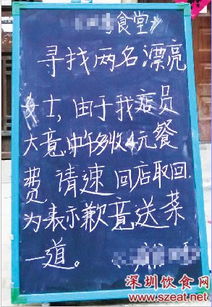 食堂
寻找两名漂亮
女士,由于我店员
大意,中午多收4元餐
费,请速回店取回.
为表示歉意,送菜
一道。
深圳饮食网
www.szeat.net